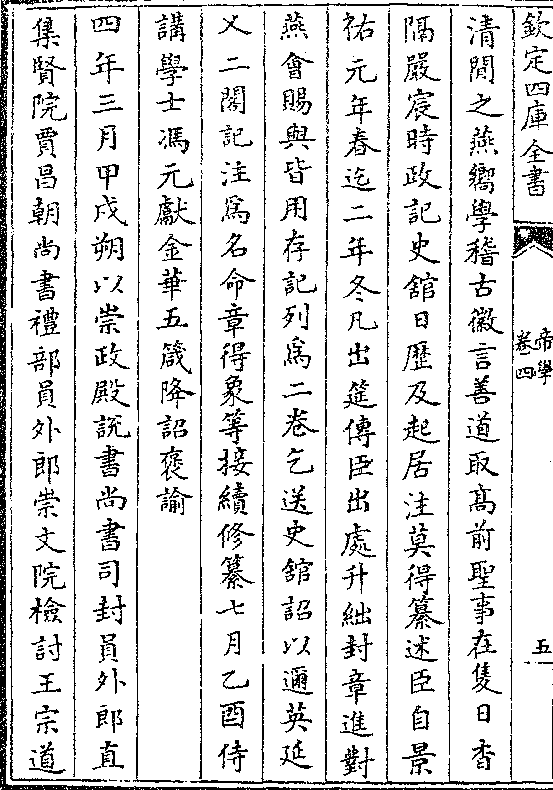 欽定四庫全書
帝學
卷四
五
清閒之燕嚮學稽古徽言善道取高前聖事在隻日杳
隔嚴宸時政記史舘日歷及起居注莫得纂述臣自景
祐元年春迄二年冬凡出筵傳臣出處升絀封章進對
燕會賜與皆用存記列為二卷乞送史舘詔以邇英延
乂二閣記注為名命章得象等接續修纂七月乙酉侍
講學士馮元獻金華五箴降詔褒諭
四年三月甲戌朔以崇政殿說書尚書司封員外郎直
集賢院賈昌朝尚書禮部員外郎崇文院檢討王宗道